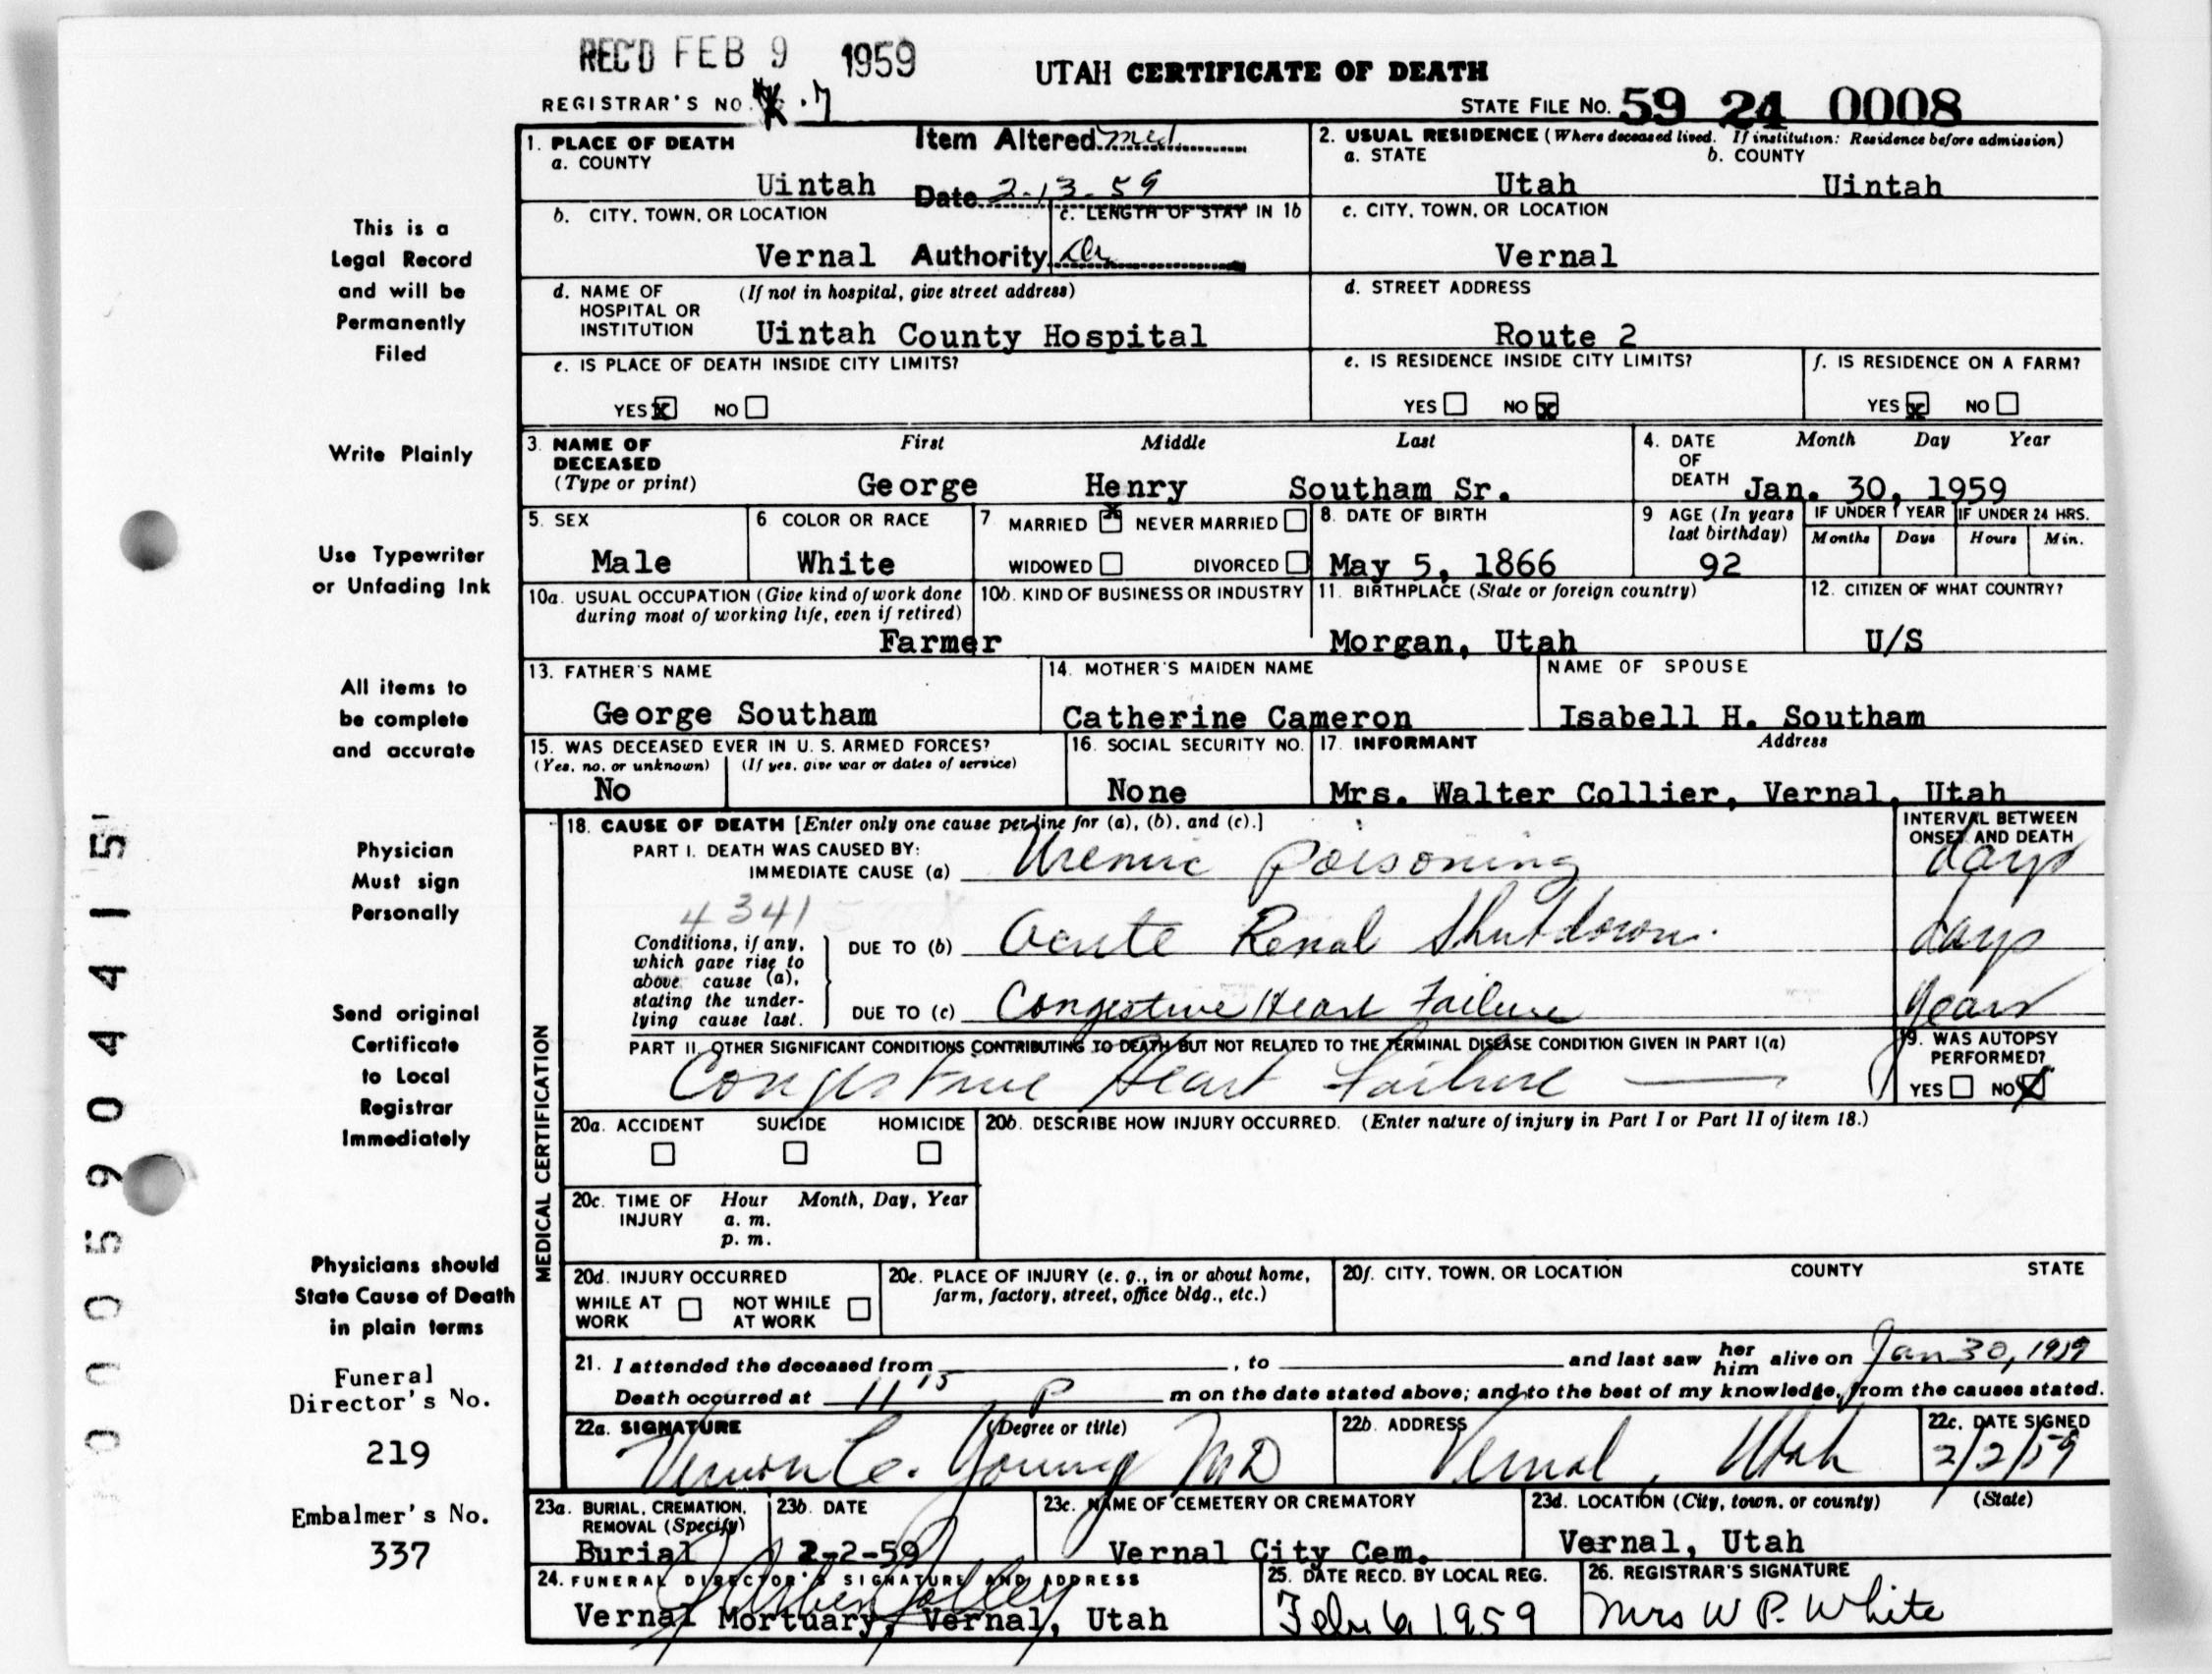 REC'D FEB 9 1959
UTAH CERTIFICATE OF DEATH
REGISTRAR'S NO. 7
STATE FILE No. 59 24 0008
This is a
Legal Record
and will be
Permanently
Filed
Write Plainly
Use Typewriter
or Unfading Ink
All items to
be complete
and accurate
Physician
Must sign
Personally
Send original
Certificate
to Local
Registrar
Immediately
Physicians should
State Cause of Death
in plain terms
Funeral
Director's No.
219
Embalmer's No.
337
0005904415
1. PLACE OF DEATH
a. COUNTY
Uintah
Item Altered med
Date 2-13-59
Authority Dr
2. USUAL RESIDENCE (Where deceased lived. If institution: Residence before admission)
a. STATE b. COUNTY
Utah Uintah
b. CITY, TOWN, OR LOCATION
Vernal
c. LENGTH OF STAY IN 1b
c. CITY, TOWN, OR LOCATION
Vernal
d. NAME OF HOSPITAL OR INSTITUTION (If not in hospital, give street address)
Uintah County Hospital
d. STREET ADDRESS
Route 2
e. IS PLACE OF DEATH INSIDE CITY LIMITS?
YES x NO
e. IS RESIDENCE INSIDE CITY LIMITS?
YES NO x
f. IS RESIDENCE ON A FARM?
YES x NO
3. NAME OF DECEASED (Type or print) First Middle Last
George Henry Southam Sr.
4. DATE OF DEATH Month Day Year
Jan. 30, 1959
5. SEX
Male
6 COLOR OR RACE
White
7 MARRIED x NEVER MARRIED
WIDOWED DIVORCED
8. DATE OF BIRTH
May 5, 1866
9 AGE (In years last birthday)
92
IF UNDER 1 YEAR IF UNDER 24 HRS.
Months Days Hours Min.
10a. USUAL OCCUPATION (Give kind of work done during most of working life, even if retired)
Farmer
10b. KIND OF BUSINESS OR INDUSTRY
11. BIRTHPLACE (State or foreign country)
Morgan, Utah
12. CITIZEN OF WHAT COUNTRY?
U/S
13. FATHER'S NAME
George Southam
14. MOTHER'S MAIDEN NAME
Catherine Cameron
NAME OF SPOUSE
Isabell H. Southam
15. WAS DECEASED EVER IN U. S. ARMED FORCES?
(Yes, no, or unknown) (If yes, give war or dates of service)
No
16. SOCIAL SECURITY NO.
None
17. INFORMANT Address
Mrs. Walter Collier, Vernal, Utah
MEDICAL CERTIFICATION
18. CAUSE OF DEATH [Enter only one cause per line for (a), (b), and (c).]
INTERVAL BETWEEN ONSET AND DEATH
PART I. DEATH WAS CAUSED BY:
IMMEDIATE CAUSE (a) Uremic poisoning days
4341
Conditions, if any, which gave rise to above cause (a), stating the underlying cause last.
DUE TO (b) Acute Renal Shutdown. days
DUE TO (c) Congestive Heart Failure years
PART II. OTHER SIGNIFICANT CONDITIONS CONTRIBUTING TO DEATH BUT NOT RELATED TO THE TERMINAL DISEASE CONDITION GIVEN IN PART I(a)
Congestive Heart Failure
19. WAS AUTOPSY PERFORMED?
YES NO X
20a. ACCIDENT SUICIDE HOMICIDE
20b. DESCRIBE HOW INJURY OCCURRED. (Enter nature of injury in Part I or Part II of item 18.)
20c. TIME OF INJURY Hour Month, Day, Year
a. m.
p. m.
20d. INJURY OCCURRED
WHILE AT WORK NOT WHILE AT WORK
20e. PLACE OF INJURY (e. g., in or about home, farm, factory, street, office bldg., etc.)
20f. CITY, TOWN, OR LOCATION COUNTY STATE
21. I attended the deceased from , to and last saw her him alive on Jan 30, 1959
Death occurred at 11 15 P m on the date stated above; and to the best of my knowledge, from the causes stated.
22a. SIGNATURE (Degree or title)
Vernon C. Young MD
22b. ADDRESS
Vernal, Utah
22c. DATE SIGNED
2/2/59
23a. BURIAL, CREMATION, REMOVAL (Specify)
Burial
23b. DATE
2-2-59
23c. NAME OF CEMETERY OR CREMATORY
Vernal City Cem.
23d. LOCATION (City, town, or county) (State)
Vernal, Utah
24. FUNERAL DIRECTOR'S SIGNATURE AND ADDRESS
Vernal Mortuary, Vernal, Utah
25. DATE RECD. BY LOCAL REG.
Feb 6 1959
26. REGISTRAR'S SIGNATURE
Mrs W P. White